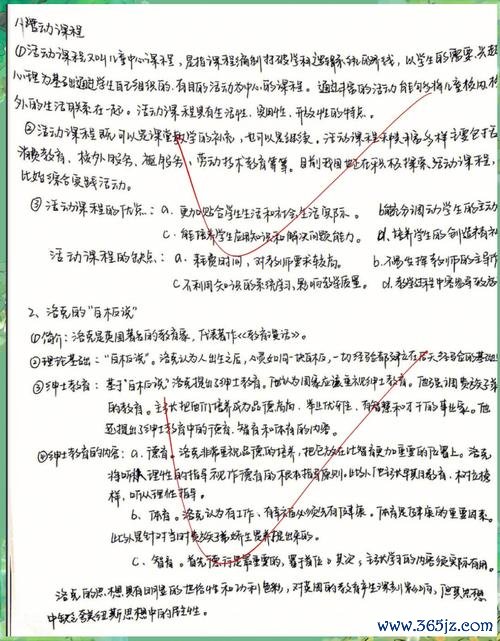 1、活动课程
①活动课程又叫儿童中心课程，是指课程编制打破学科逻辑系统的界线，以学生的需要、兴趣
心理为基础通过学生自己组织的、有目的活动为中心的课程。通过丰富的活动能够将儿童校内校
外的生活联系在一起。活动课程具有生活性、实用性、开放性的特点。
②活动课程既可以是课堂教学的补充，也可以是继续。活动课程来源丰富多样主要包括
消费教育、校外服务、劳动技术教育等等。目前我国也在积极探索活动课程，
比如综合实践活动。
③活动课程的优点：a、更加贴合学生生活和社会生活实际。b、充分调动学生的主动
c、能培养学生应用知识和解决问题能力。d、培养学生的创造精神
活动课程的缺点：a、耗费时间，对教师要求较高。b、不易发挥教师的主导作
c、不利用知识的系统学习，影响教学质量。d、教学过程中容易导致
2、洛克的“白板说”
①简介：洛克是英国著名的教育家，代表著作《教育漫话》。
②理论基础：“白板说”。洛克认为人出生之后，心灵如同一块白板，一切经验都建立在后天经验的基础
③绅士教育：基于“白板说”洛克提出绅士教育。他认为国家应该重视绅士教育。他强调贵族子弟
的教育。主张把他们培养成为品德高尚、举止优雅、有智慧和才干的事业家。他
还提出了绅士教育中的德育、智育和体育的内容。
④绅士教育的内容：a、德育。洛克非常重视品德的培养，把它放在比智育更加重要的位置上。洛克
将听从理性的指导视作德育的根本指导原则。此外他主张早期教育、树立榜
样，听从理性指导。
b、体育。洛克认为有工作、有幸福必须先有健康。体育是健康的重要因素。
此外是针对当时贵族娇生惯养提出来的。
c、智育。首先德行是最重要的，置于首位。其次，主张学习的内容须实际有用。
洛克的思想具有明显的世俗性和功利色彩，对英国的教育产生深刻影响，但其思想
中缺乏夸美纽斯思想中的民主性。
www.365jz.com